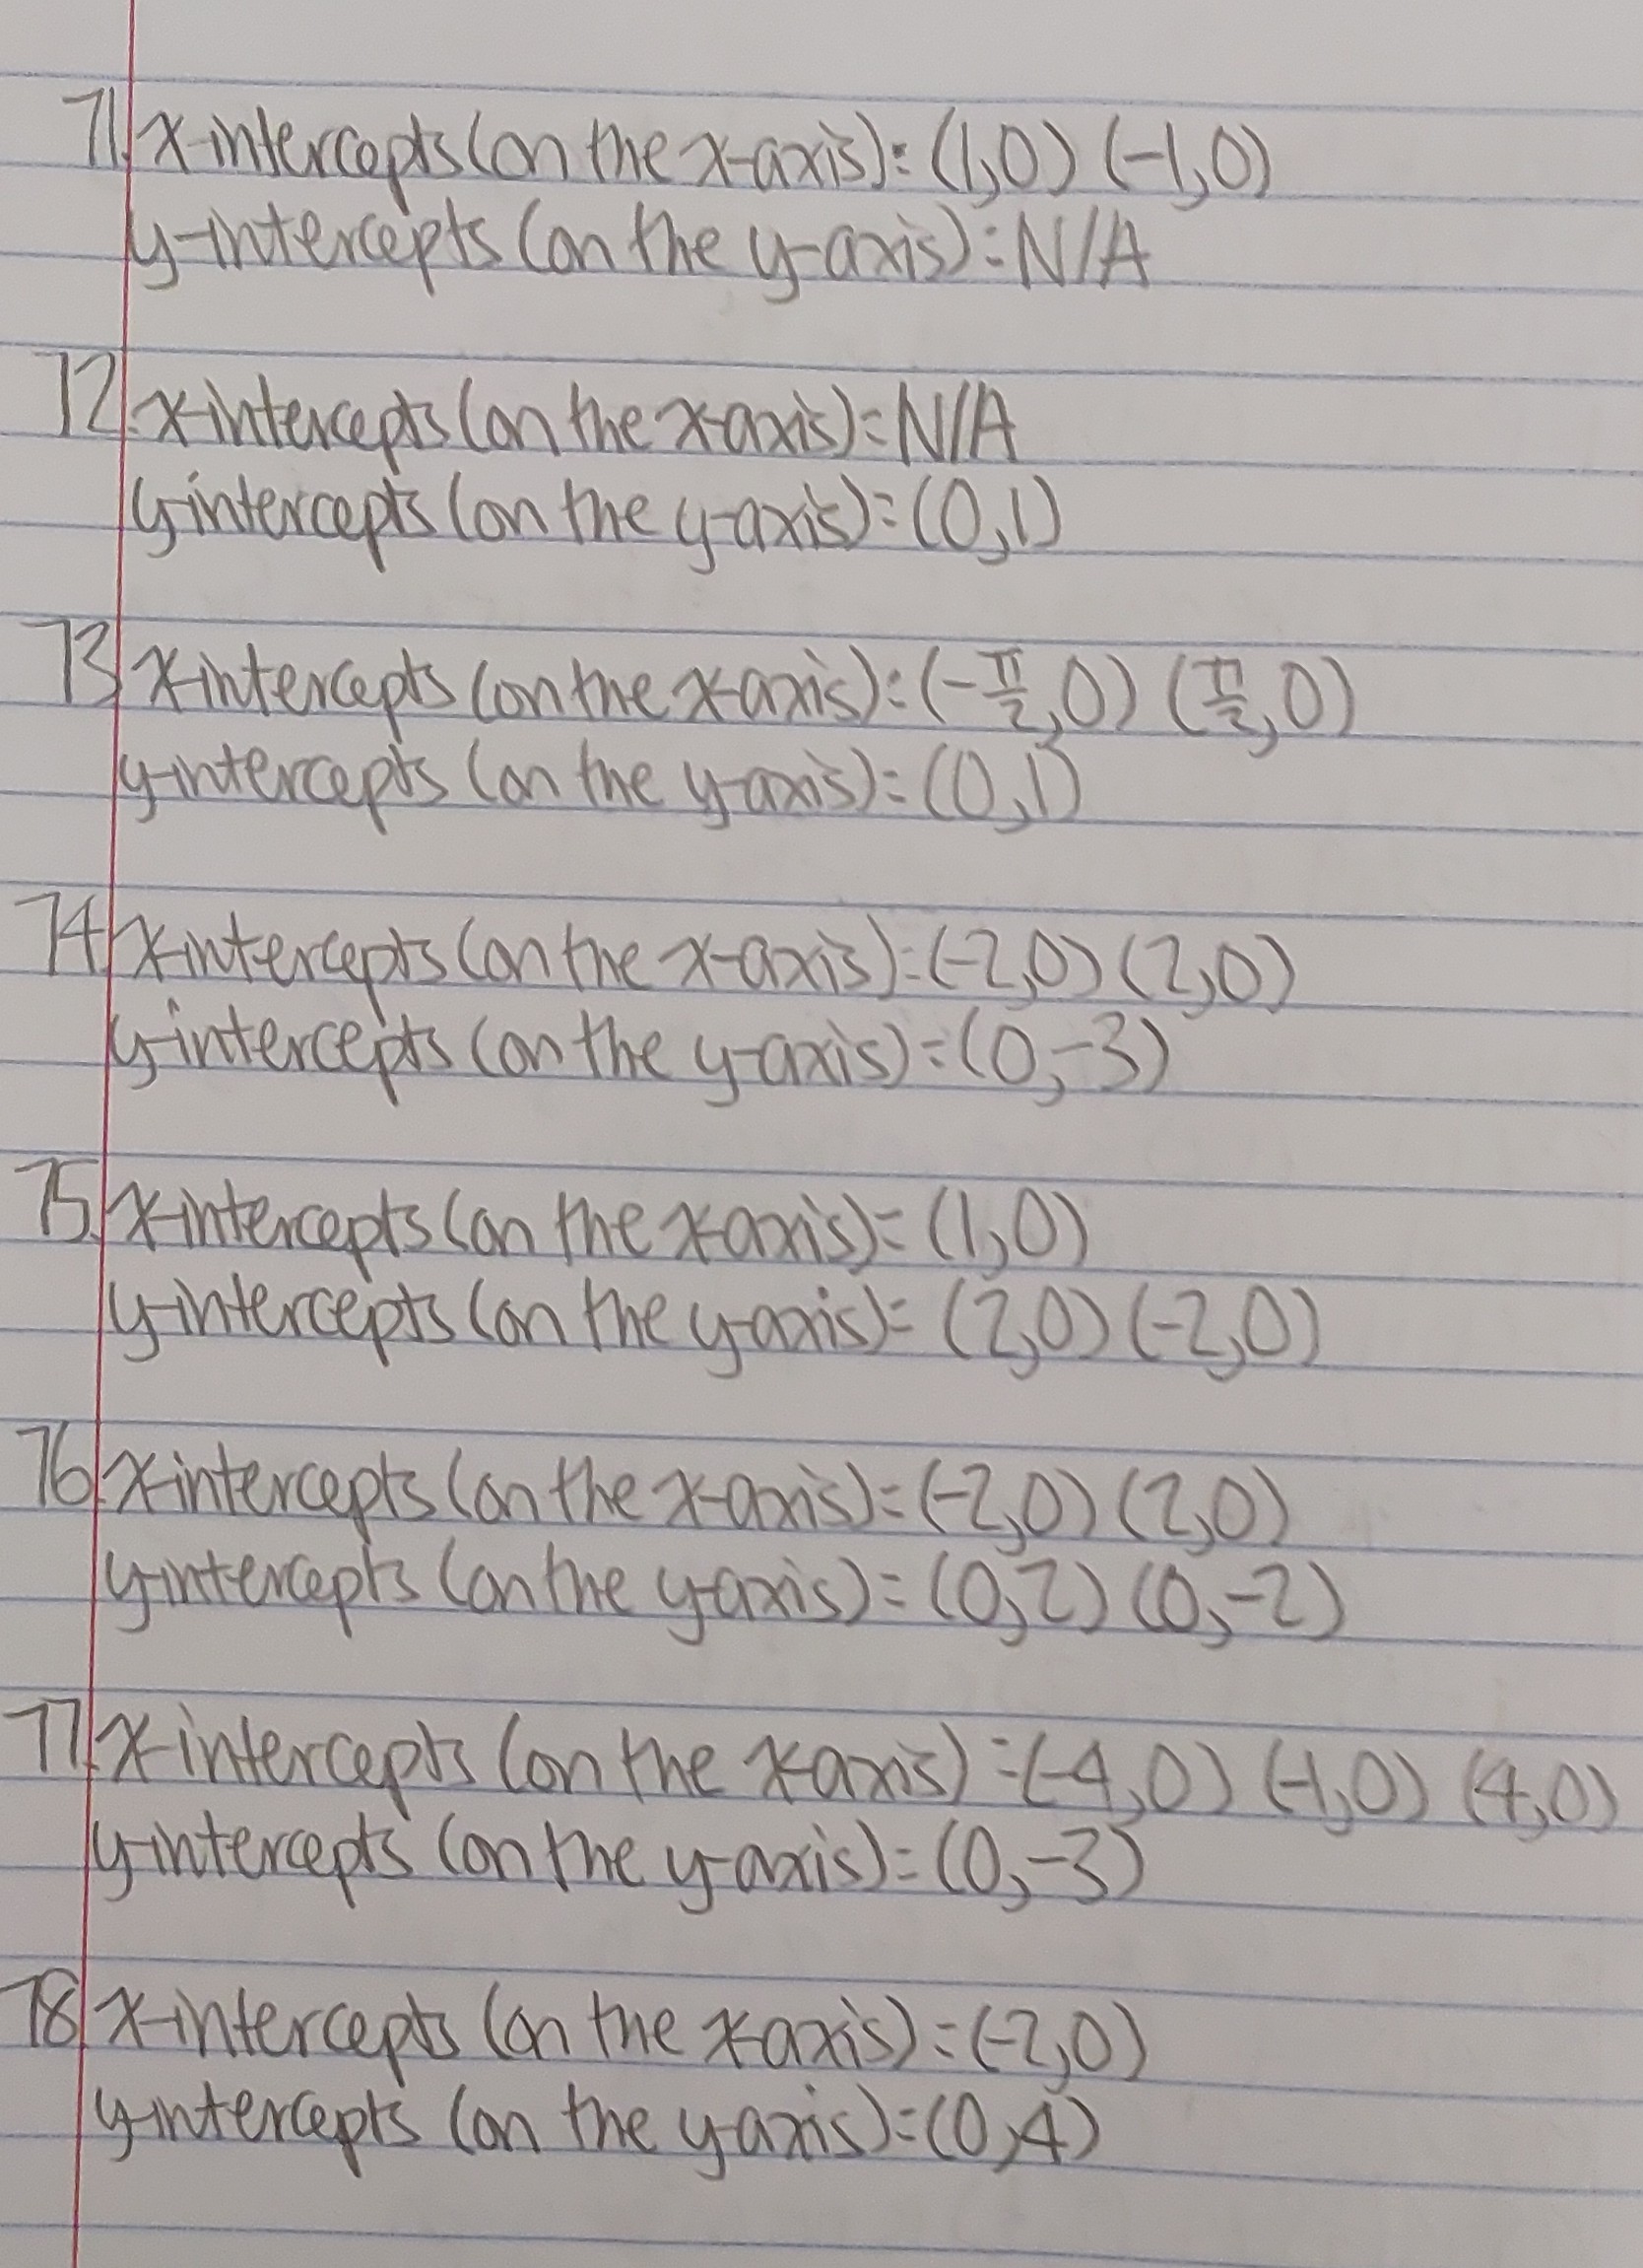 71. x-intercepts (on the x-axis): (1,0) (-1,0)
y-intercepts (on the y-axis): N/A
72. x-intercepts (on the x-axis): N/A
y-intercepts (on the y-axis): (0,1)
73. x-intercepts (on the x-axis): (-π/2,0) (π/2,0)
y-intercepts (on the y-axis): (0,1)
74. x-intercepts (on the x-axis): (-2,0) (2,0)
y-intercepts (on the y-axis): (0,-3)
75. x-intercepts (on the x-axis): (1,0)
y-intercepts (on the y-axis): (2,0) (-2,0)
76. x-intercepts (on the x-axis): (-2,0) (2,0)
y-intercepts (on the y-axis): (0,2) (0,-2)
77. x-intercepts (on the x-axis): (-4,0) (-1,0) (4,0)
y-intercepts (on the y-axis): (0,-3)
78. x-intercepts (on the x-axis): (-2,0)
y-intercepts (on the y-axis): (0,4)